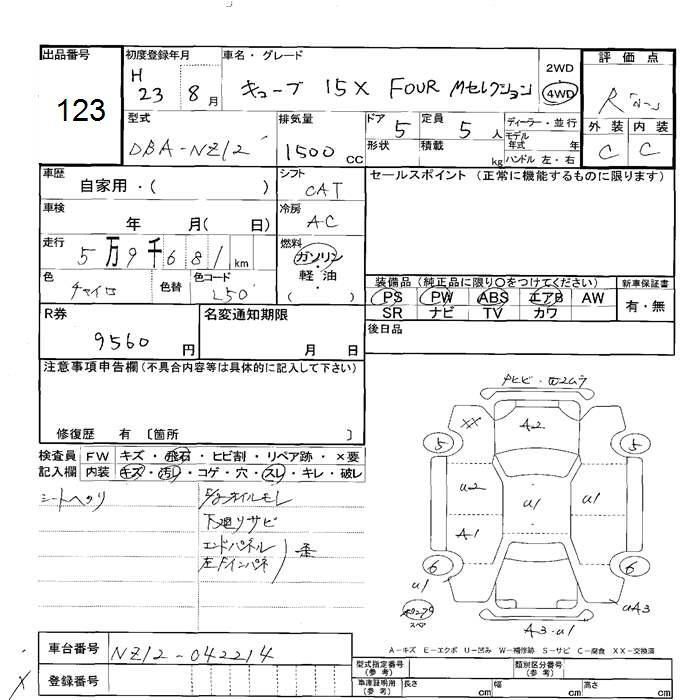 出品番号
123
初度登録年月
H 23 8月
車名・グレード
キューブ 15X FOUR Mセレクション
2WD
4WD
評価点
R
外装 内装
C C
型式
DBA-NZ12
排気量
1500 CC
ドア 5
定員 5 人
形状
積載 kg
ディーラー・並行
モデル年式 年
ハンドル 左・右
車歴
自家用・( )
シフト
CAT
セールスポイント (正常に機能するものに限ります)
車検
年 月( 日)
冷房
AC
走行
5万9千681km
燃料
ガソリン
軽・油
( )
色
チャイロ
色替
色コード
L50
装備品 (純正品に限り○をつけてください)
PS PW ABS エアB AW
SR ナビ TV カワ
新車保証書
有・無
R券
9560円
名変通知期限
月 日
後日品
注意事項申告欄(不具合内容等は具体的に記入して下さい)
修復歴 有 〔箇所 〕
検査員 FW キズ・飛石・ヒビ割・リペア跡・×要
記入欄 内装 キズ・汚レ・コゲ・穴・スレ・キレ・破レ
シートヘタリ
オイルモレ
下廻りサビ
エンドパネル
左Fインパネ
XX
A2
5
5
U2
U1
U1
A1
6
6
U1
UA3
スペア
A3・U1
A-キズ E-エクボ U-凹み W-補修跡 S-サビ C-腐食 XX-交換済
車台番号
NZ12-042214
登録番号
型式指定番号(参考)
類別区分番号(参考)
車庫証明用(参考)
長さ cm
幅 cm
高さ cm